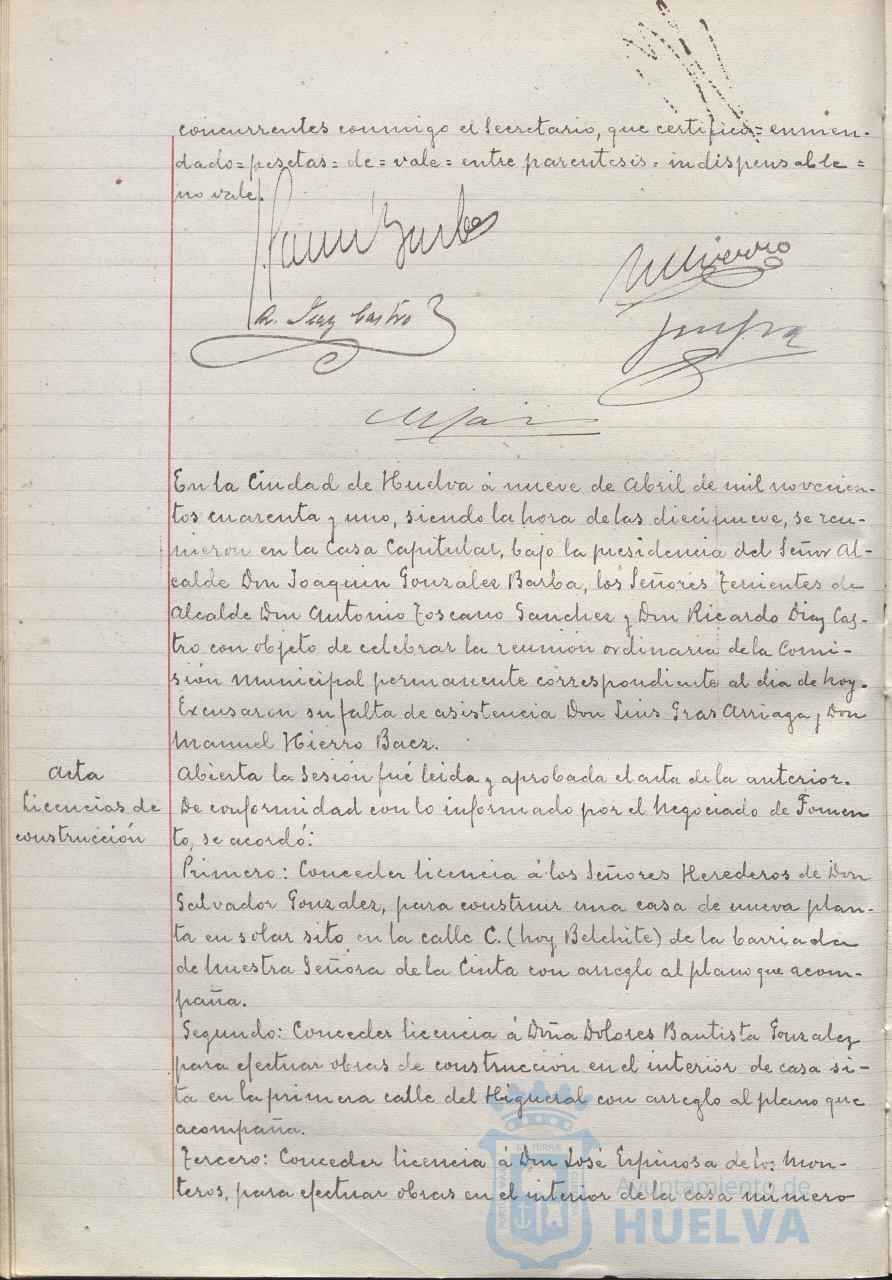 concurrentes conmigo el Secretario, que certifico= enmen-
dado= pesetas= de= vale= entre parentesis= indispensable=
no vale.
R. Diaz Castro
MHierro
En la Ciudad de Huelva á nueve de Abril de mil novecien-
tos cuarenta y uno, siendo la hora de las diecinueve, se reu-
nieron en la Casa Capitular, bajo la presidencia del Señor Al-
calde Don Joaquin Gonzalez Barba, los Señores Tenientes de
Alcalde Don Antonio Toscano Sanchez y Don Ricardo Diaz Cas-
tro con objeto de celebrar la reunión ordinaria de la Comi-
sión Municipal permanente correspondiente al dia de hoy.
Excusaron su falta de asistencia Don Luis Gras Arriaga y Don
Manuel Hierro Baez.
Acta
Abierta la Sesión fué leida y aprobada el acta de la anterior.
Licencias de
construcción
De conformidad con lo informado por el Negociado de Fomen
to, se acordó:
Primero: Conceder licencia á los Señores Herederos de Don
Salvador Gonzalez, para construir una casa de nueva plan-
ta en solar sito en la calle C. (hoy Belchite) de la barriada
de Nuestra Señora de la Cinta con arreglo al plano que acom-
paña.
Segundo: Conceder licencia á Doña Dolores Bautista Gonzalez
para efectuar obras de construcción en el interior de casa si-
ta en la primera calle del Higueral con arreglo al plano que
acompaña.
Tercero: Conceder licencia á Don José Espinosa de los Mon-
teros, para efectuar obras en el interior de la casa número
Ayuntamiento de
HUELVA